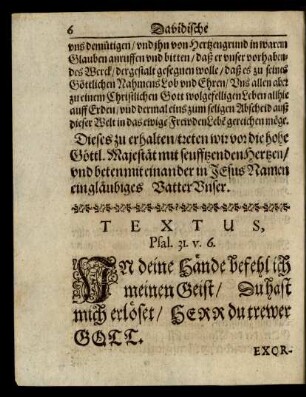 6 Davidische
vns demütigen/ vnd jhn von Hertzengrund in warem
Glauben anruffen vnd bitten/ daß er vnser vorhaben-
des Werck/ dergestalt gesegnen wolle/ daß es zu seines
Göttlichen Nahmens Lob vnd Ehren/ Vns allen aber
zu einem Christlichen Gott wolgefelligen Leben allhie
auff Erden/ vnd dermal eins zum seligen Abscheid auß
dieser Welt in das ewige Frewden Lebē gereichen möge.
Dieses zu erhalten/ treten wir vor die hohe
Göttl. Majestät mit seufftzenden Hertzen/
vnd beten mit einander in JEsus Namen
ein gläubiges Vatter Vnser.
TEXTUS,
Psal. 31. v. 6.
IN deine Hände befehl ich
meinen Geist/ Du hast
mich erlöset/ HERR du trewer
GOTT.
EXOR-